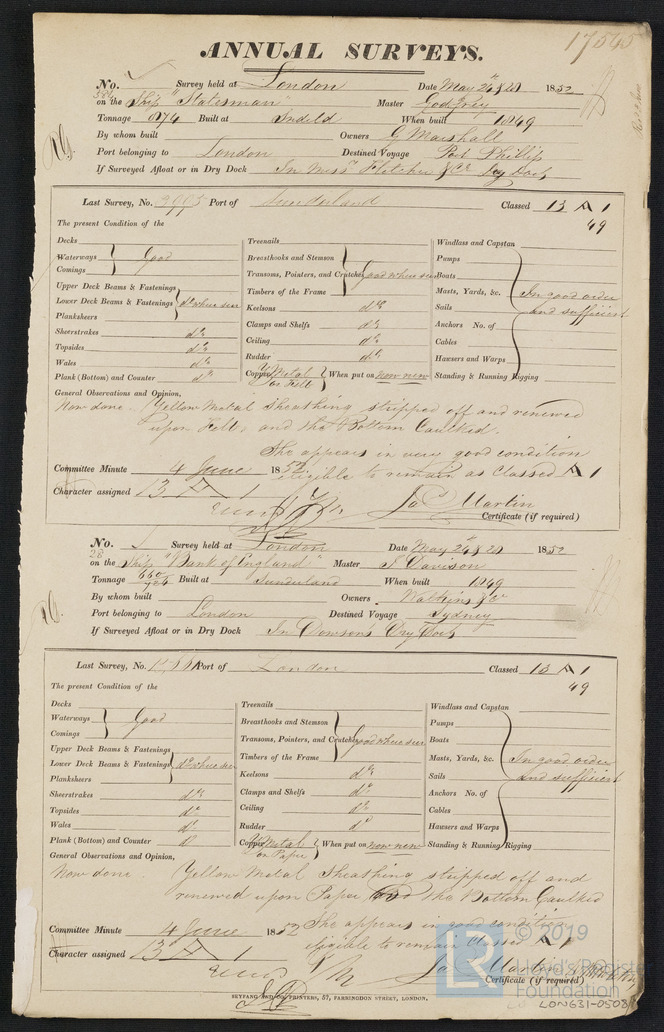 17545
ANNUAL SURVEYS.
No. Survey held at London Date May 26 & 28 1852
on the Ship "Statesman" Master Godfrey
Tonnage 874 Built at Sndld When built 1849
By whom built Owners G Marshall
Port belonging to London Destined Voyage Port Phillip
If Surveyed Afloat or in Dry Dock In Messrs Fletcher & Co Dry Dock
Last Survey, No. 9993 Port of Sunderland Classed 13 A 1
49
The present Condition of the
Decks
Waterways
Comings
Good
Upper Deck Beams & Fastenings
Lower Deck Beams & Fastenings
Planksheers
do where seen
Sheerstrakes do
Topsides do
Wales do
Plank (Bottom) and Counter do
Treenails
Breasthooks and Stemson
Transoms, Pointers, and Crutches
Timbers of the Frame
Good where seen
Keelsons do
Clamps and Shelfs do
Ceiling do
Rudder do
Copper Y Metal on Felt When put on now new
Windlass and Capstan
Pumps
Boats
Masts, Yards, &c.
Sails
Anchors No. of
Cables
Hawsers and Warps
Standing & Running Rigging
In good order and sufficient
General Observations and Opinion,
Now done. Yellow Metal Sheathing stripped off and renewed
upon Felt, and the Bottom Caulked.
She appears in very good condition
Committee Minute 4 June 1852 eligible to remain as Classed A 1
Character assigned 13 A 1
Jas Martin
Certificate (if required)
No. Survey held at London Date May 26 & 28 1852
28
on the Ship "Bank of England" Master J Davison
Tonnage Built at Sunderland When built 1849
By whom built Owners Watkins & Co
Port belonging to London Destined Voyage Sydney
If Surveyed Afloat or in Dry Dock In Dowson's Dry Dock
Last Survey, No. Port of London Classed 13 A 1
49
The present Condition of the
Decks
Waterways
Comings
Good
Upper Deck Beams & Fastenings
Lower Deck Beams & Fastenings
Planksheers
do where seen
Sheerstrakes do
Topsides do
Wales do
Plank (Bottom) and Counter do
Treenails
Breasthooks and Stemson
Transoms, Pointers, and Crutches
Timbers of the Frame
Good where seen
Keelsons do
Clamps and Shelfs do
Ceiling do
Rudder do
Copper Y Metal on Paper When put on now new
Windlass and Capstan
Pumps
Boats
Masts, Yards, &c.
Sails
Anchors No. of
Cables
Hawsers and Warps
Standing & Running Rigging
In good order and sufficient
General Observations and Opinion,
Now done. Yellow Metal Sheathing stripped off and
renewed upon Paper and the Bottom Caulked
She appears in good condition
Committee Minute 4 June 1852 eligible to remain Classed A 1
Character assigned 13 A 1
Jas Martin
Certificate (if required)
SEYFANG AND CO. PRINTERS, 57, FARRINGDON STREET, LONDON.
LR © 2019
Lloyd's Register
Foundation
LON631-0503